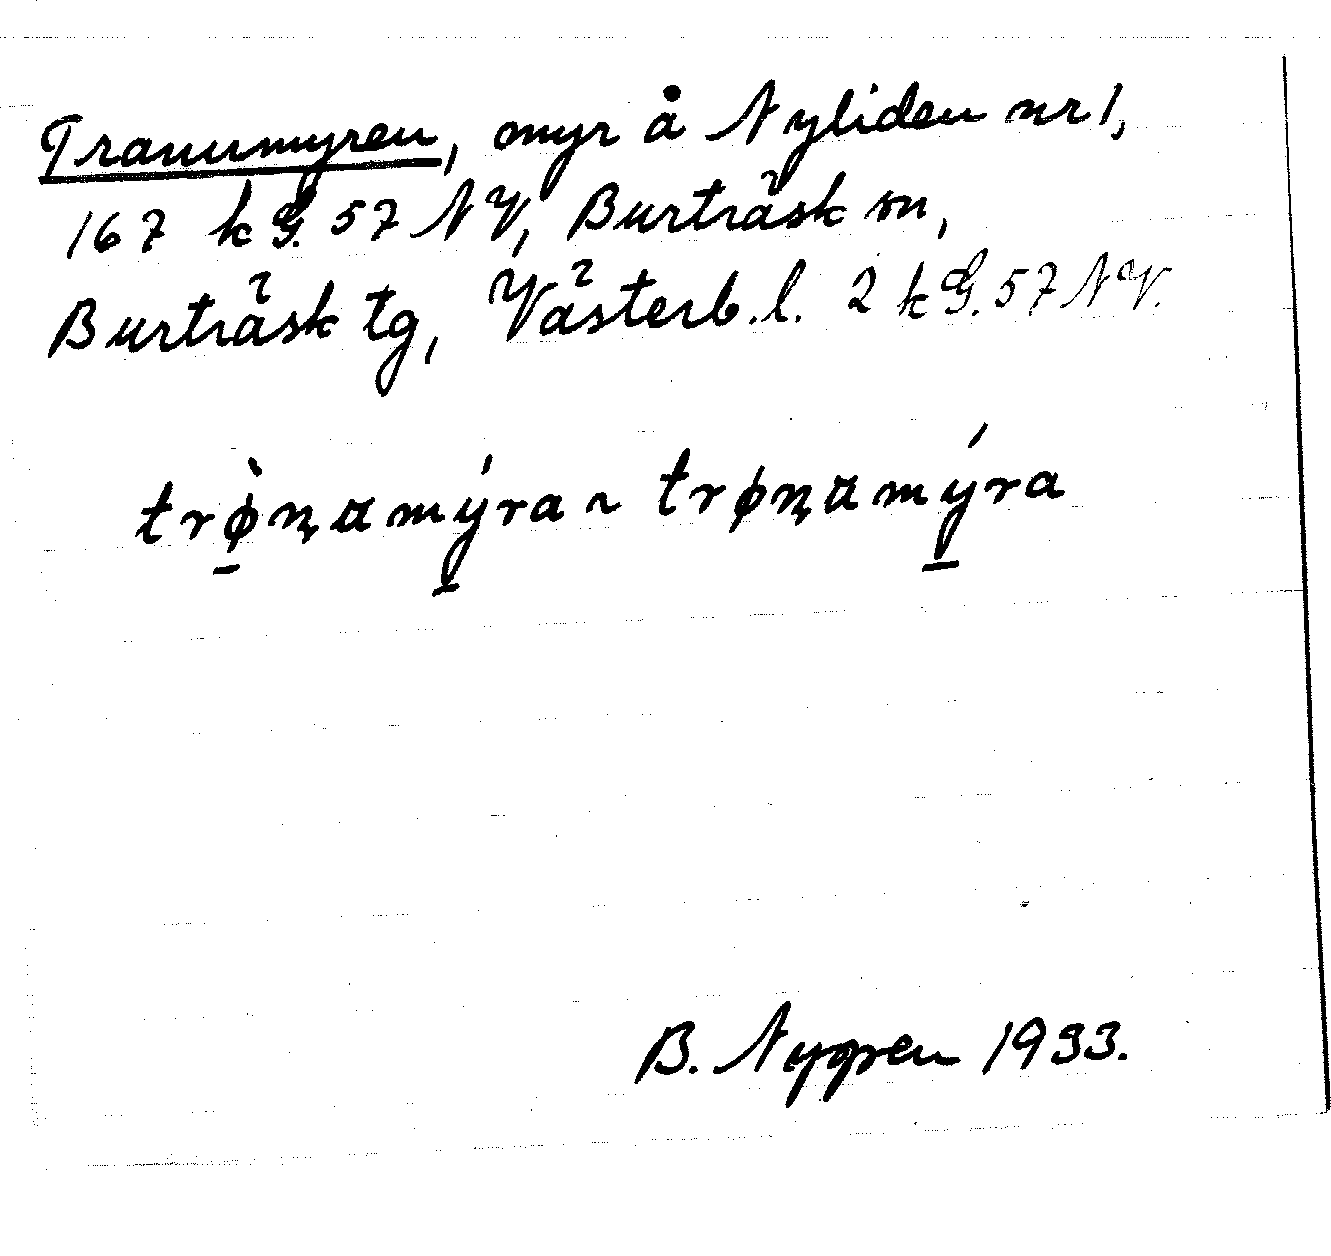 Tranumyren, myr å Nyliden nr 1,
167 k G. 57 NV, Burträsk sn,
Burträsk tg, Västerb. l. 2 k G. 57 NV.
trø̠̀n̡ɑmý̠ra ~ trøn̡ɑmý̠ra
B. Nygren 1933.